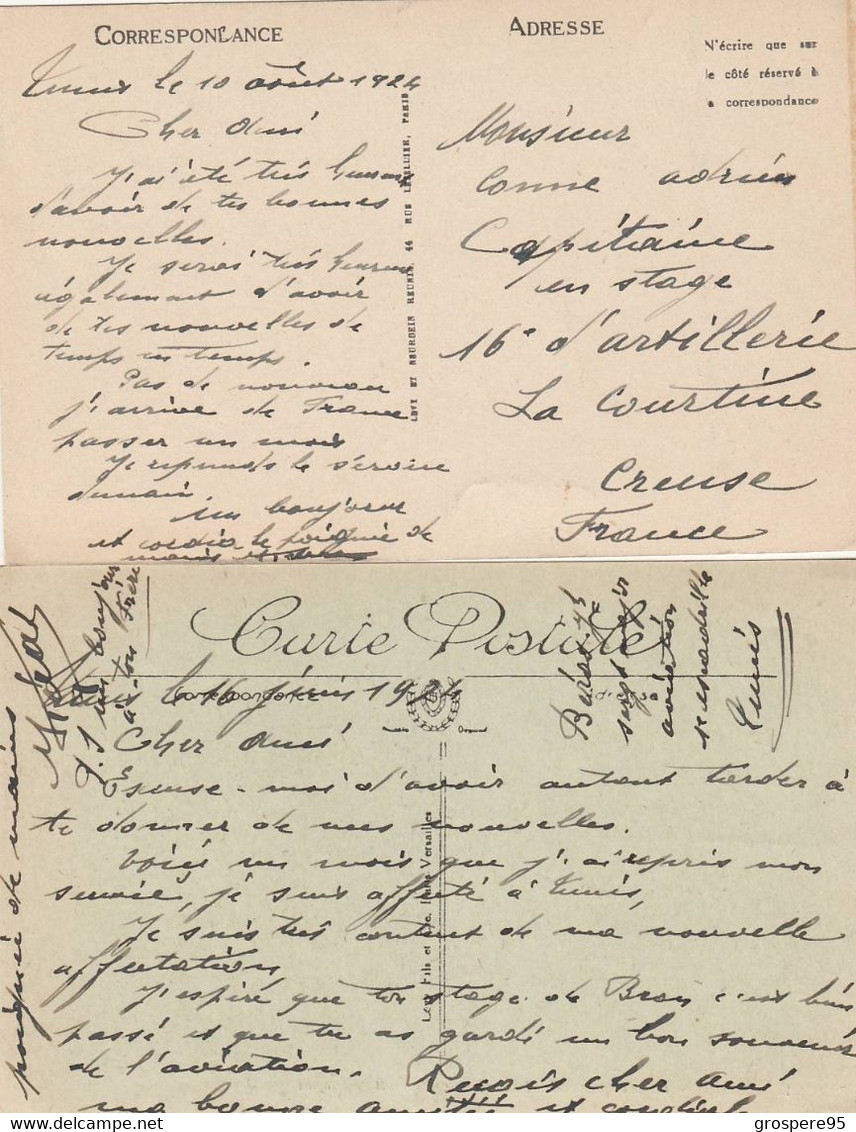 CORRESPONDANCE
ADRESSE
N'écrire que sur
le côté réservé à
a correspondance
Tunis le 10 août 1924
Cher Ami
J'ai été très heureux
d'avoir de tes bonnes
nouvelles.
Je serai très heureux
également d'avoir
de tes nouvelles de
temps en temps.
Pas de nouveau
j'arrive de France
passer un mois
Je reprends le service
demain
un bonjour
et cordiale poignée de
mains
LEVY ET NEURDEIN REUNIS, 44 RUE LETELLIER, PARIS
Monsieur
Conne Adrien
Capitaine
en stage
16e d'artillerie
La Courtine
Creuse
France
Carte Postale
Correspondance
Adresse
Tunis le 16
Cher Ami
Excuse-moi d'avoir autant tarder à
te donner de mes nouvelles.
Voici un mois que j'ai repris mon
service, je suis affecté à Tunis,
Je suis très content de ma nouvelle
affectation
J'espère que ton stage de Bron c'est bien
passé et que tu as gardé un bon souvenir
de l'aviation.
Reçois cher Ami
ma bonne amitié et cordiale
poignée de mains
un bonjour
à ton frère
sergt
aviation
escadrille
Tunis
Levy Fils et Cie
Versailles
© grospere95